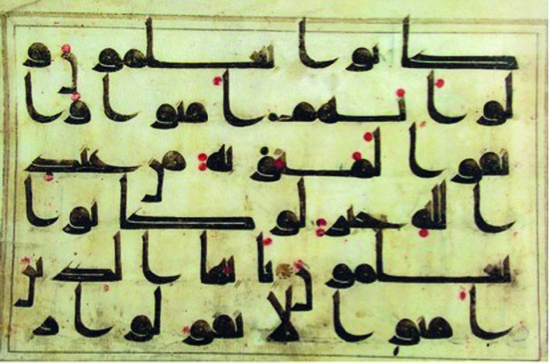 كانوا يعلمون و
لو انهم امنوا وا
تقوا لمثوبة من عند
الله خير لو كانوا
يعلمون يايها الذين
امنوا لا تقولوا